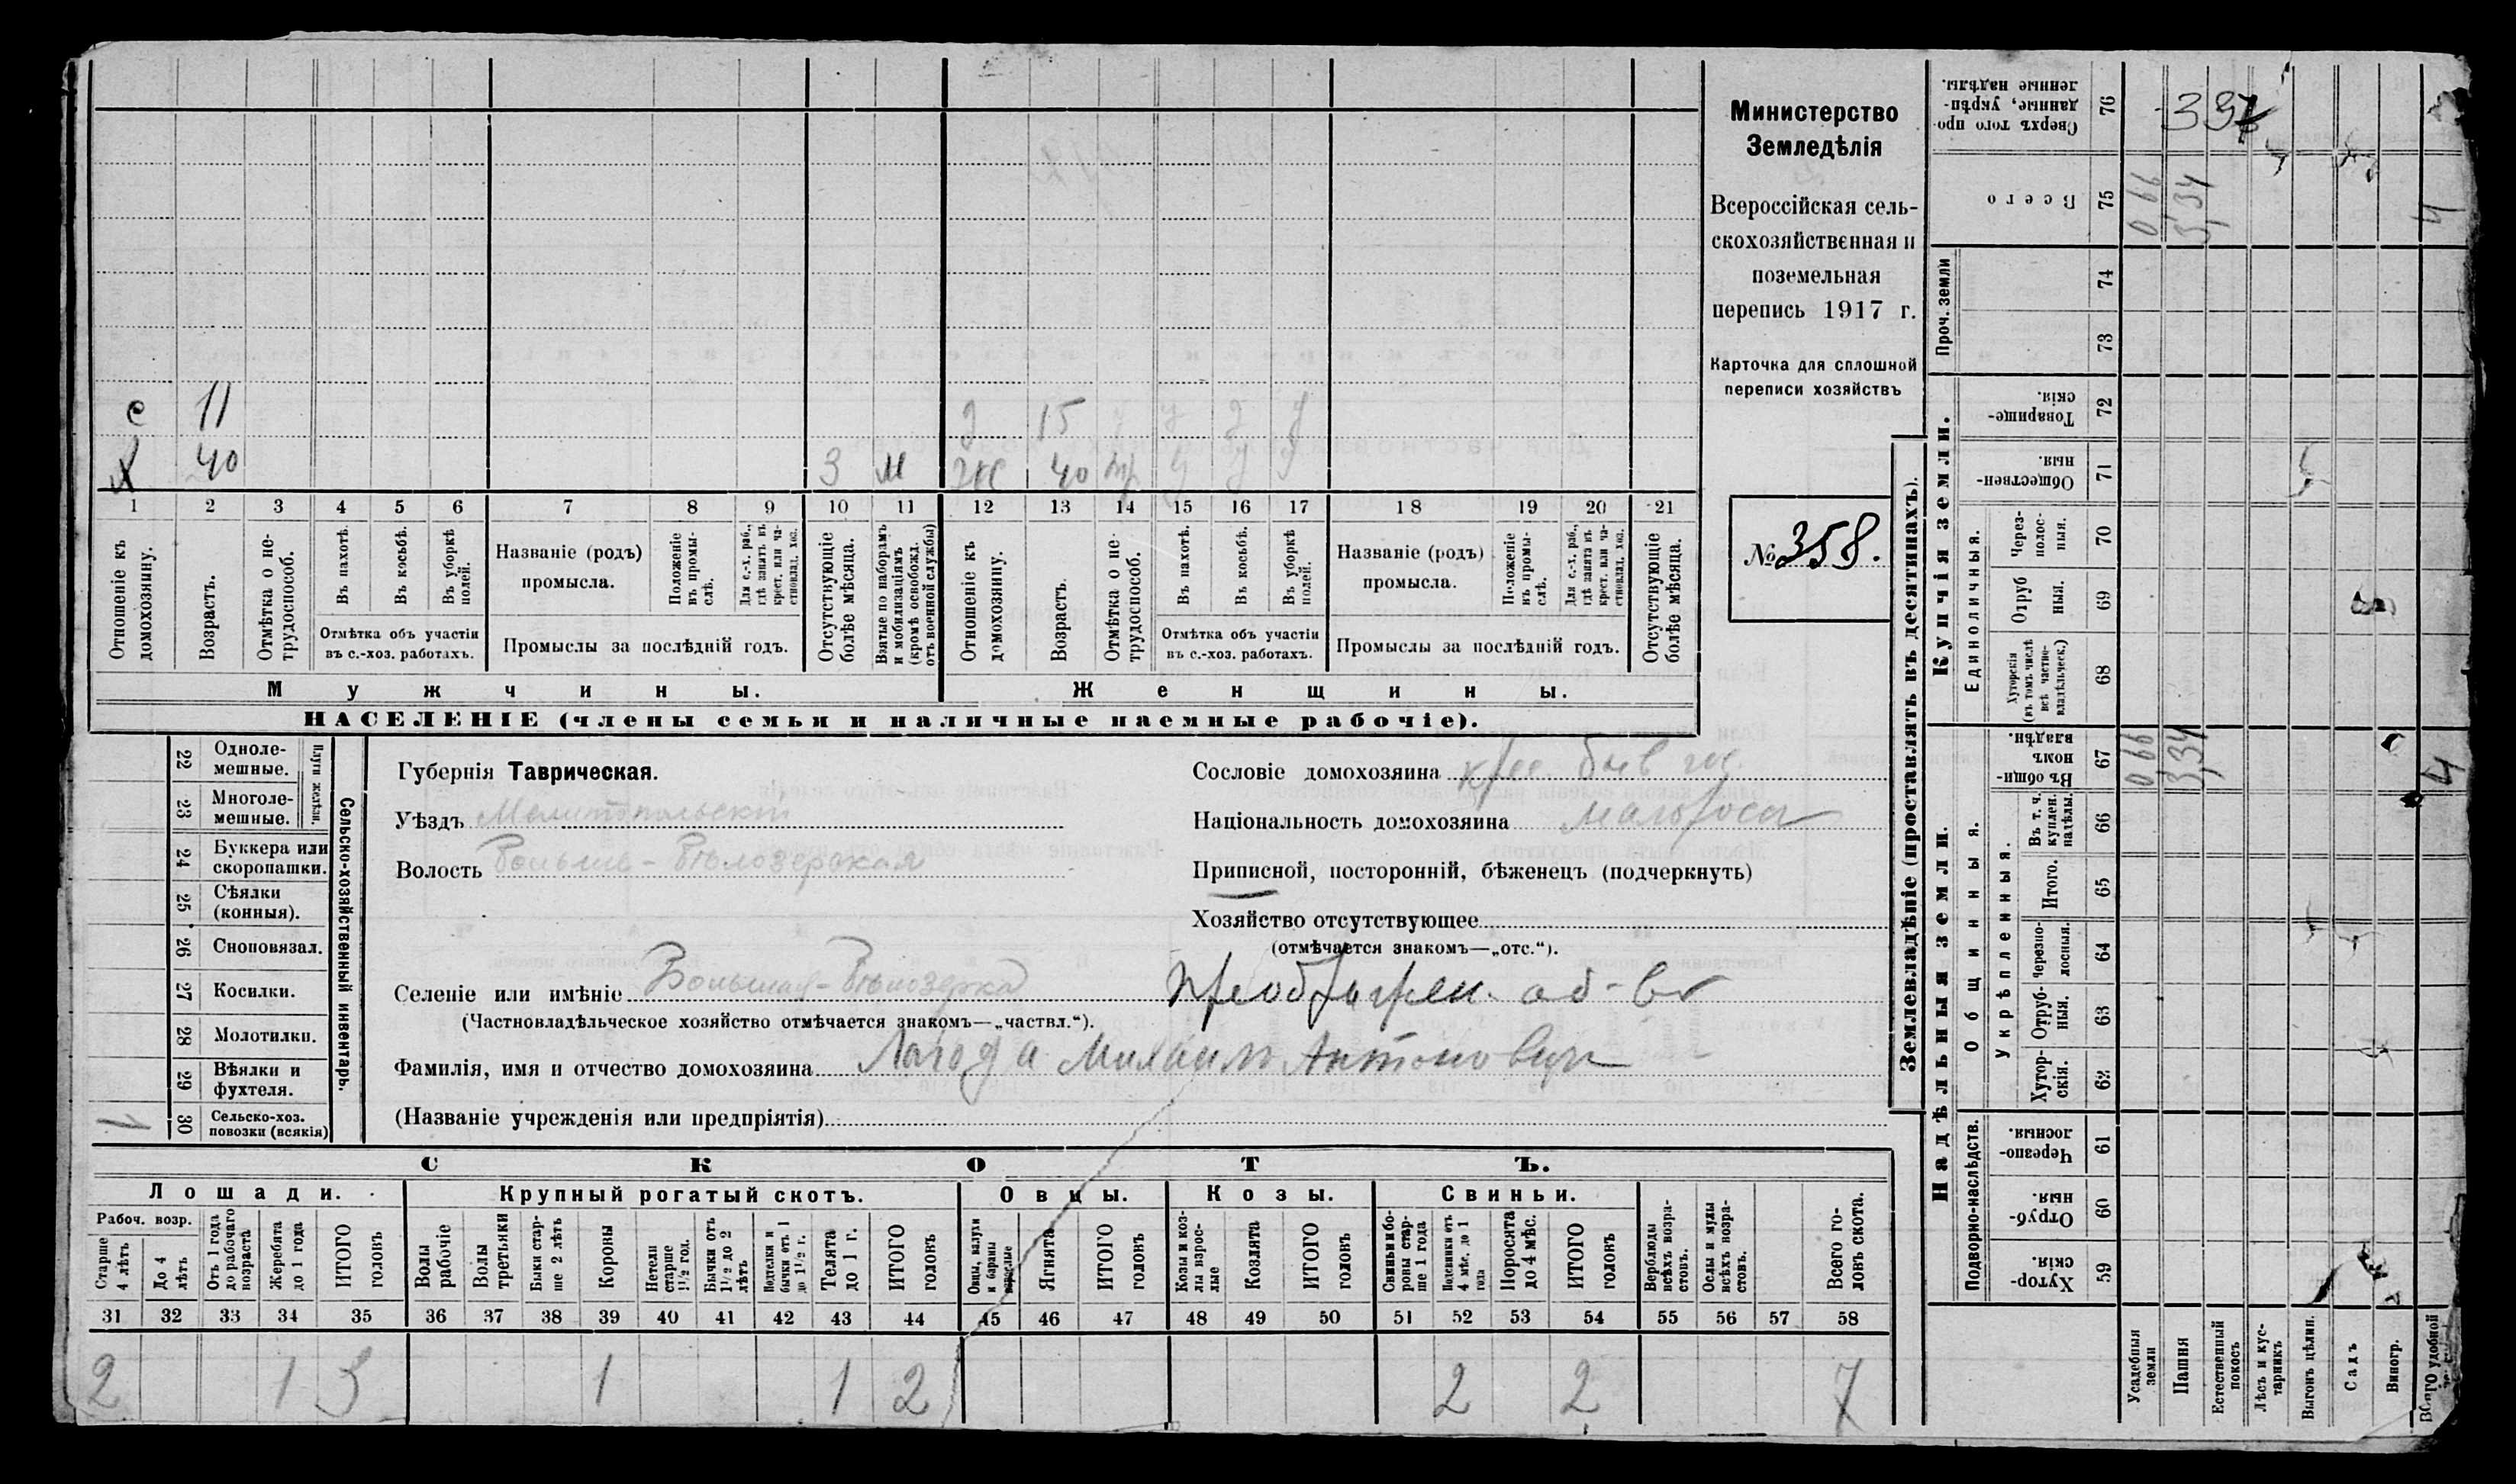 Министерство
Земледѣлія
Всероссійская сель-
скохозяйственная и
поземельная
перепись 1917 г.
Карточка для сплошной
переписи хозяйствъ
№ 358.
с 11 д 15 у у у
х 40 З м ж 40 у у у
1 2 3 4 5 6 7 8 9 10 11 12 13 14 15 16 17 18 19 20 21
Отношеніе къ домохозяину.
Возрастъ.
Отмѣтка о не-трудоспособ.
Въ пахотѣ.
Въ косьбѣ.
Въ уборкѣ полей.
Отмѣтка объ участіи
въ с.-хоз. работахъ.
Названіе (родъ)
промысла.
Положеніе въ промы-слѣ.
Для с.-х. раб., гдѣ занятъ въ крест. или ча-стновлад. хоз.
Промыслы за послѣдній годъ.
Отсутствующіе болѣе мѣсяца.
Взятые по наборамъ и мобилизаціямъ (кромѣ освобожд. отъ военной службы)
Отношеніе къ домохозяину.
Возрастъ.
Отмѣтка о не-трудоспособ.
Въ пахотѣ.
Въ косьбѣ.
Въ уборкѣ полей.
Отмѣтка объ участіи
въ с.-хоз. работахъ.
Названіе (родъ)
промысла.
Положеніе въ промы-слѣ.
Для с.-х. раб., гдѣ занята въ крест. или ча-стновлад. хоз.
Промыслы за послѣдній годъ.
Отсутствующіе болѣе мѣсяца.
Мужчины.
Женщины.
НАСЕЛЕНІЕ (члены семьи и наличные наемные рабочіе).
22 Одноле-мешные.
23 Многоле-мешные.
Плуги желѣзн.
24 Буккера или скоропашки.
25 Сѣялки (конныя).
26 Сноповязал.
27 Косилки.
28 Молотилки.
29 Вѣялки и фухтеля.
30 Сельско-хоз. повозки (всякія) 1
Сельско-хозяйственный инвентарь.
Губернія Таврическая.
Уѣздъ Мелитопольскій
Волость Больше-Бѣлозерская
Сословіе домохозяина
Національность домохозяина малоросс
Приписной, посторонній, бѣженецъ (подчеркнуть)
Хозяйство отсутствующее
(отмѣчается знакомъ—„отс.“).
Селеніе или имѣніе Большая-Бѣлозерка Преображен. об-во
(Частновладѣльческое хозяйство отмѣчается знакомъ—„частвл.“).
Фамилія, имя и отчество домохозяина Лагода Михаилъ Антоновичъ
(Названіе учрежденія или предпріятія)
СКОТЪ.
Лошади.
Крупный рогатый скотъ.
Овцы.
Козы.
Свиньи.
Рабоч. возр.
Старше 4 лѣтъ
До 4 лѣтъ
Отъ 1 года до рабочаго возраста
Жеребята до 1 года
ИТОГО головъ
Волы рабочіе
Волы третьяки
Быки стар-ше 2 лѣтъ
Коровы
Нетели старше 1½ год.
Бычки отъ 1½ до 2 лѣтъ
Подтелки и бычки отъ 1 до 1½ г.
Телята до 1 г.
ИТОГО головъ
Овцы, валухи и бараны взрослые
Ягнята
ИТОГО головъ
Козы и коз-лы взрос-лые
Козлята
ИТОГО головъ
Свиньи и бо-ровы стар-ше 1 года
Подсвинки отъ 4 мѣс. до 1 года
Поросята до 4 мѣс.
ИТОГО головъ
Верблюды всѣхъ возра-стовъ.
Ослы и мулы всѣхъ возра-стовъ.
Всего го-ловъ скота.
31 32 33 34 35 36 37 38 39 40 41 42 43 44 45 46 47 48 49 50 51 52 53 54 55 56 57 58
2 1 3 1 1 2 2 2 7
Землевладѣніе (проставлять въ десятинахъ).
Купчія земли.
Надѣльныя земли.
Сверхъ того про-данные, укрѣп-ленные надѣлы. 76
Всего 75 0 66 3,34 4
Проч. земли
74
73
Товарище-скія. 72
Обществен-ныя. 71
Единоличныя.
Через-полос-ныя. 70
Отруб ныя. 69
Хуторскія (въ томъ числѣ всѣ частно-владѣльческ.) 68
Въ общин-номъ владѣн. 67 0 66 3,34 4
Общинныя.
Укрѣпленныя.
Въ т. ч. куплен. надѣлы. 66
Итого. 65
Черезпо-лосныя. 64
Отруб-ныя. 63
Хутор-скія. 62
Подворно-наслѣдств.
Черезпо-лосныя. 61
Отруб-ныя. 60
Хутор-скія. 59
Усадебныя земли
Пашня
Естественный покосъ
Лѣсъ и кус-тарникъ
Выгонъ цѣлин.
Садъ
Виногр.
Всего удобной